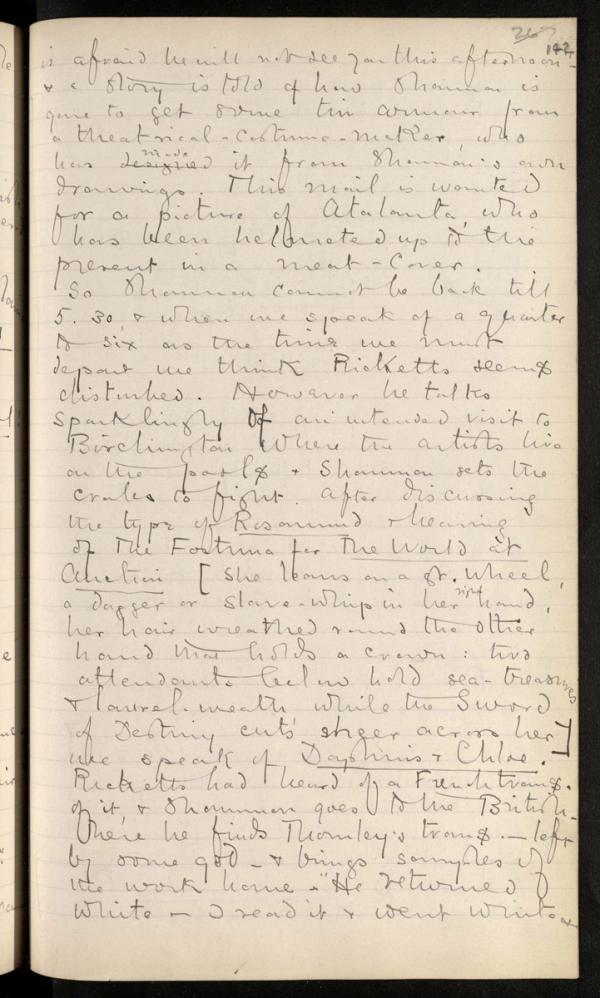 267
142
is afraid he will not see you this afternoon –
& a story is told of how Shannon is
gone to get some tin armour from
a theatrical-costume-maker, who
has designed made it from Shannon's own
drawings. This mail is wanted
for a picture of Atalanta, who
has been helmeted up to the
present in a meat-cover.
So Shannon cannot be back till
5.30, & when we speak of a quarter
to six as the time we must
depart we think Ricketts seems
disturbed. However he talks
sparklingly of an intended visit to
Birchington where the artists live
on the pools & Shannon sets the
crabs to fight. After discussing
the type of Rosamund & hearing
of The Fortuna for The World at
Auction [she leans on a gr. wheel,
a dagger or slave-whip in her right hand,
her hair wreathed round the other
hand that holds a crown: two
attendants below hold sea-treasures
& laurel-wreath while the Sword
of Destiny cuts sheer across her]
we speak of Daphnis & Chloe.
Ricketts had heard of a French trans.
of it, & Shannon goes to the British.
There he finds Thornley's trans. – left
by some god – & brings samples of
the work home – "He returned
white – I read it & went white